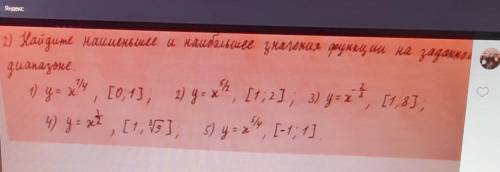 Яндекс
2) Найдите наименьшее и наибольшее значения функции на заданном
диапазоне.
1) y = x^{7/4}, [0;1]; 2) y = x^{5/2}, [1;2]; 3) y = x^{-2/3}, [1,8];
4) y = x^{1/2}, [1; ∛9]; 5) y = x^{5/4}, [-1;1].